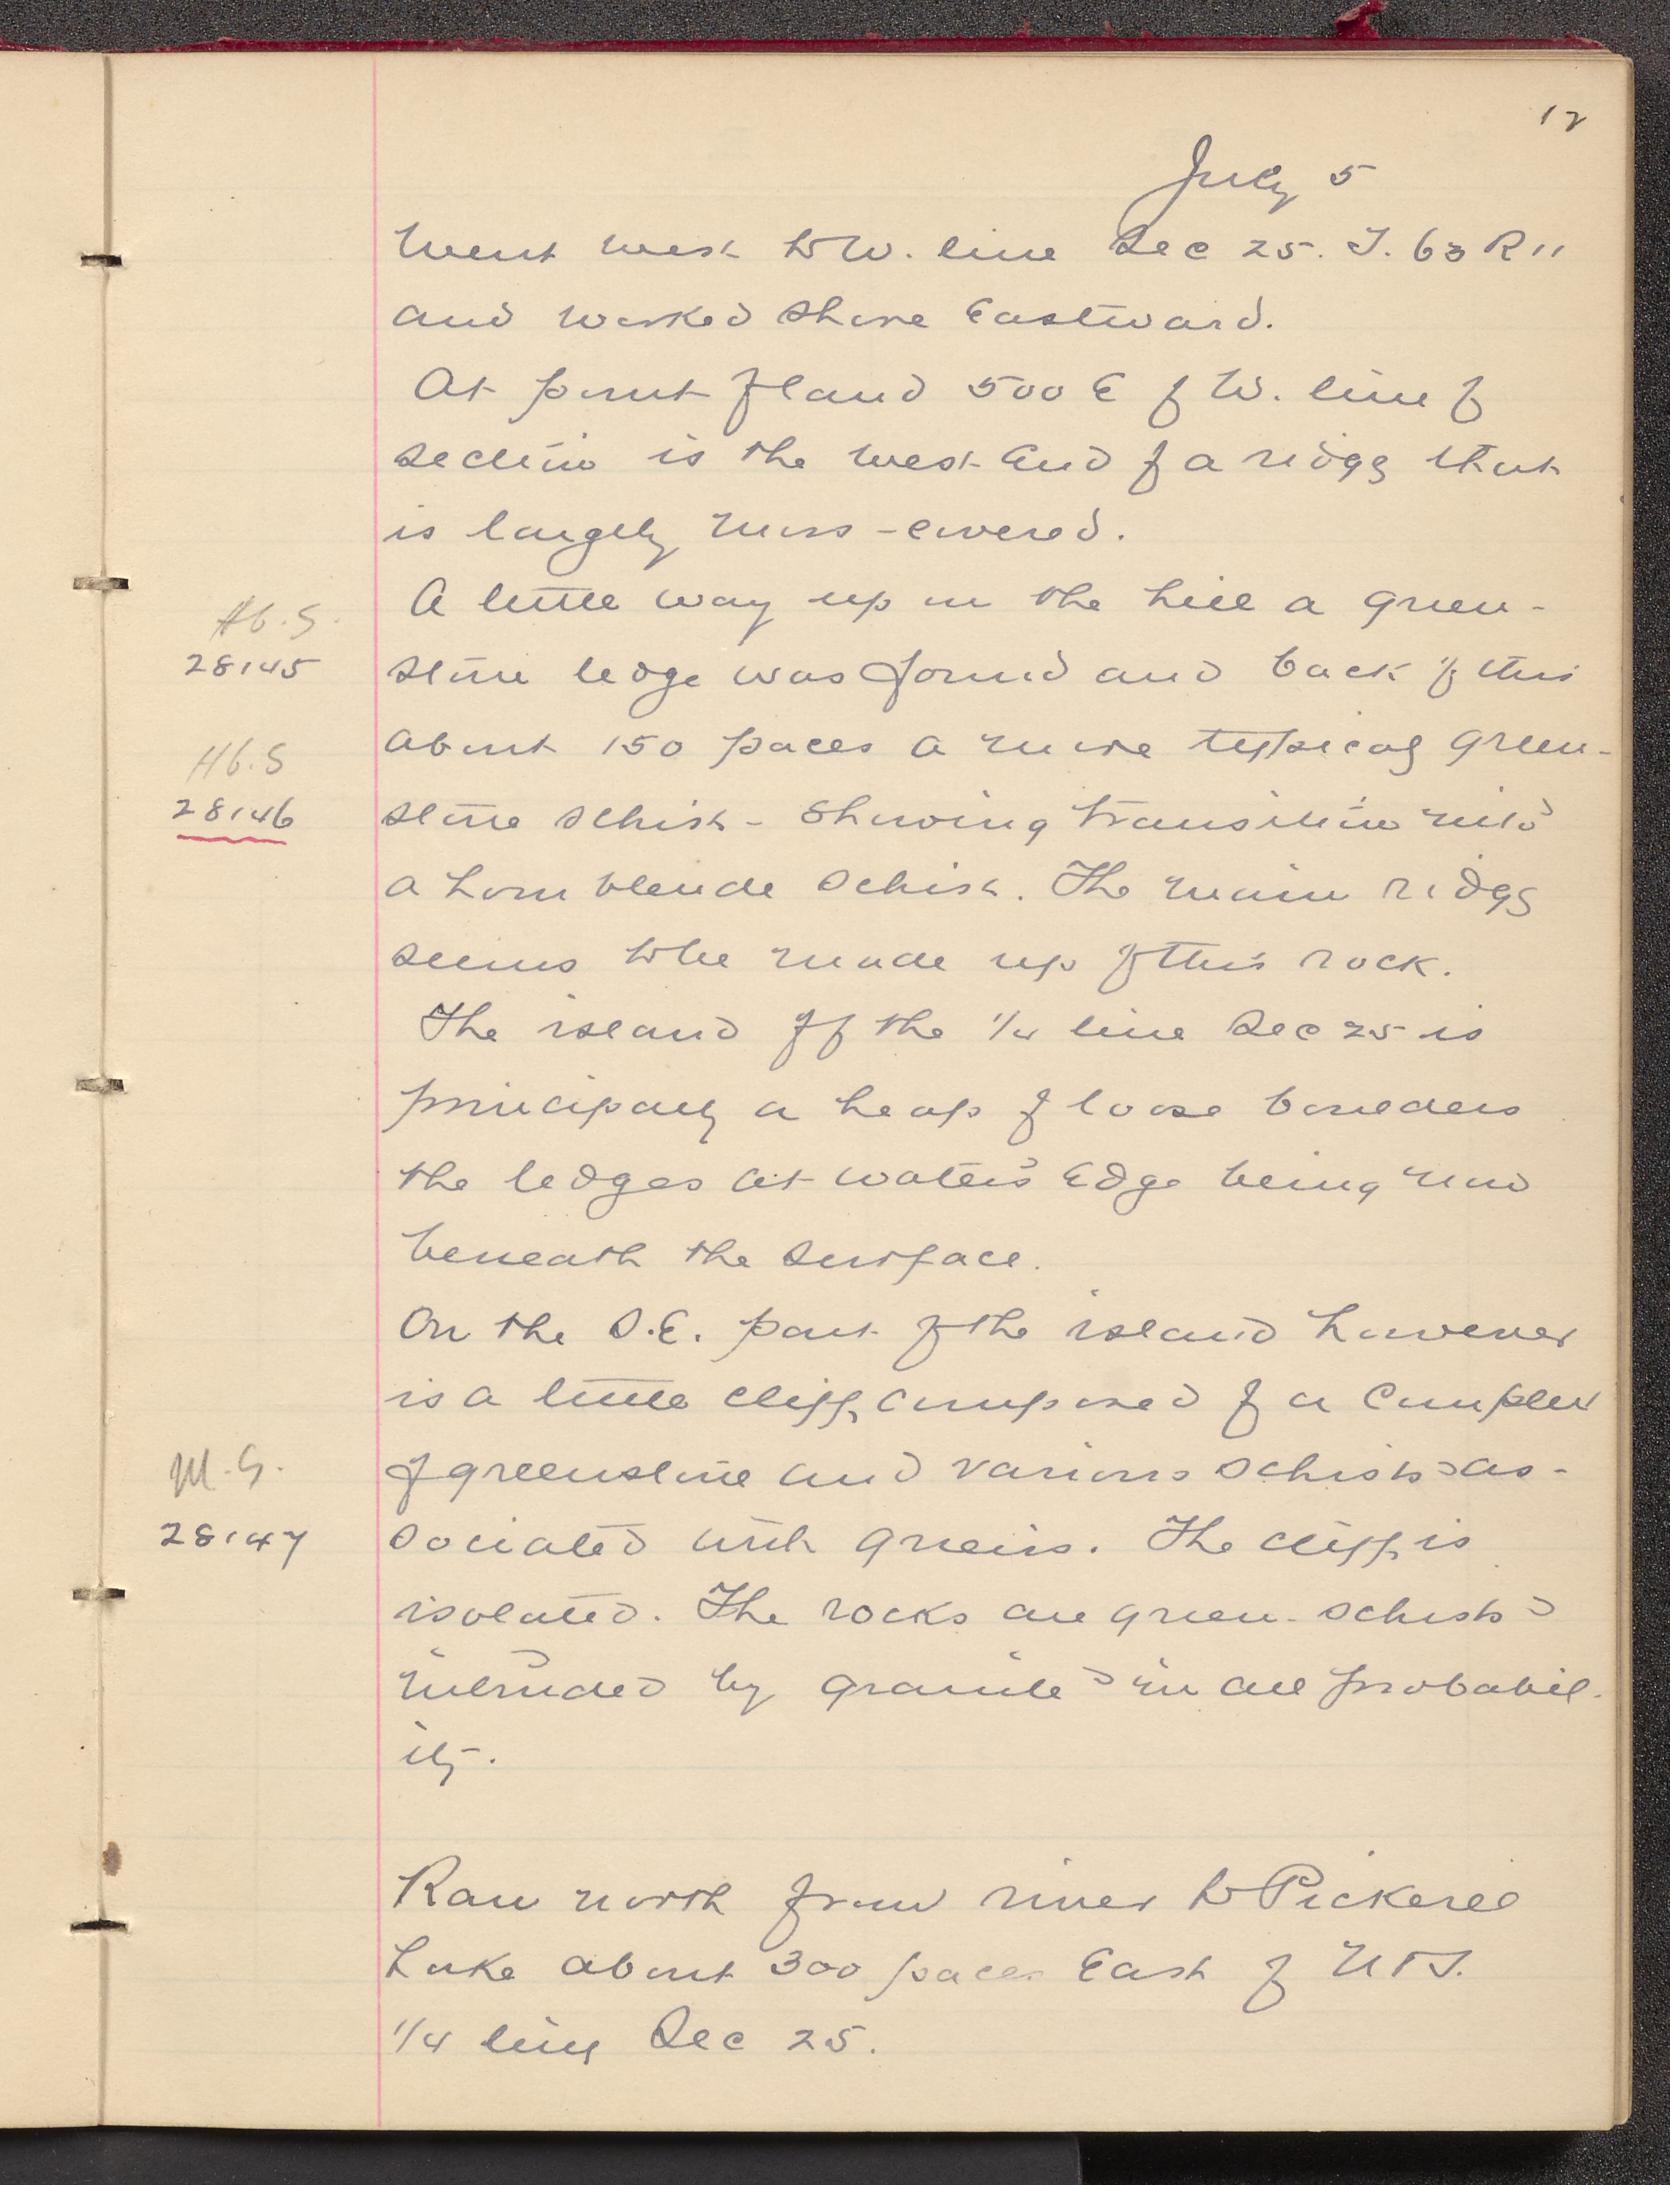 12
July 5
Went west to W. line Sec 25. T. 63 R 11
and worked shore Eastward.
At point of land 500 E of W. line of
section is the west end of a ridge that
is largely moss-covered.
A little way up on the hill a green-
Hb.S.
28145
stone ledge was found and back of this
about 150 paces a more typical green-
Hb.S
28146
stone schist - showing transition into
a hornblende schist. The main ridge
seems to be made up of this rock.
The island off the 1/4 line Sec 25 is
principally a heap of loose boulders
the ledges at water's edge being now
beneath the surface.
On the S.E. part of the island however
is a little cliff, composed of a complex
of greenstone and various schists as-
M.G.
28147
sociated with gneiss. The cliff is
isolated. The rocks are green-schists
intruded by granite in all probabil-
ity.
Ran north from river to Pickerel
Lake about 300 paces East of N + S.
1/4 line Sec 25.